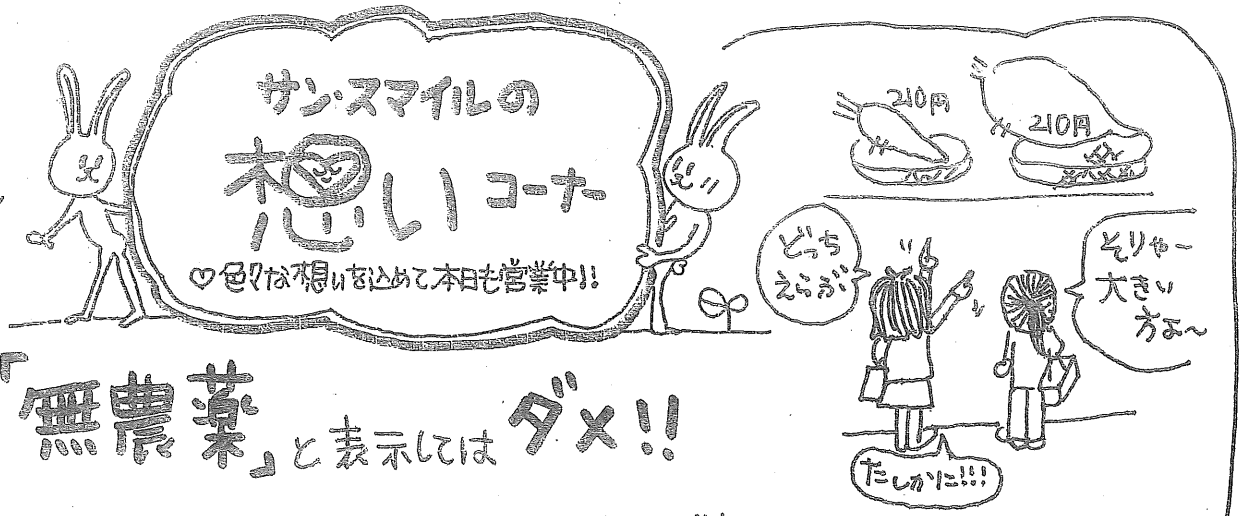 サン・スマイルの
想いコーナー
♡色々な想いを込めて本日も営業中!!
「無農薬」と表示してはダメ!!
210円
210円
どっち
えらぶ
そりゃー
大きい
方よ〜
たしかに!!!